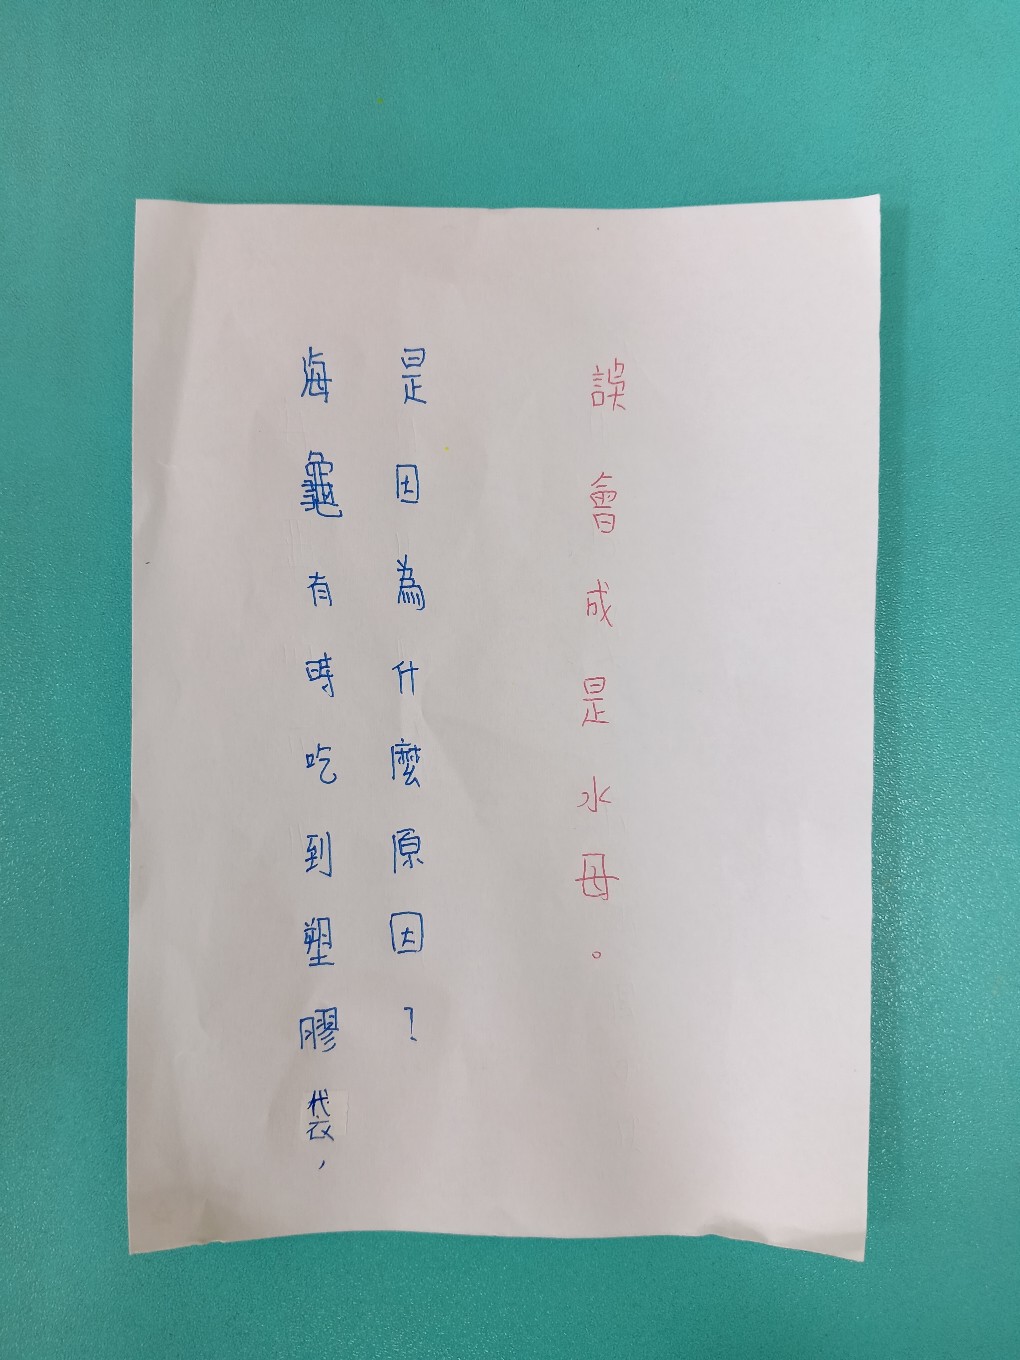 海龜有時吃到塑膠袋，
是因為什麼原因？
誤會成是水母。